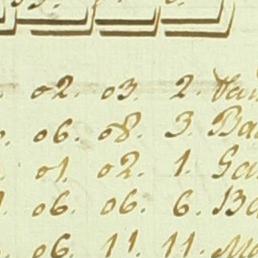 02. 03. 2.
06. 08. 3. Ba
01. 02. 1. Ga
06. 06. 6. Ba
06. 11. 11.